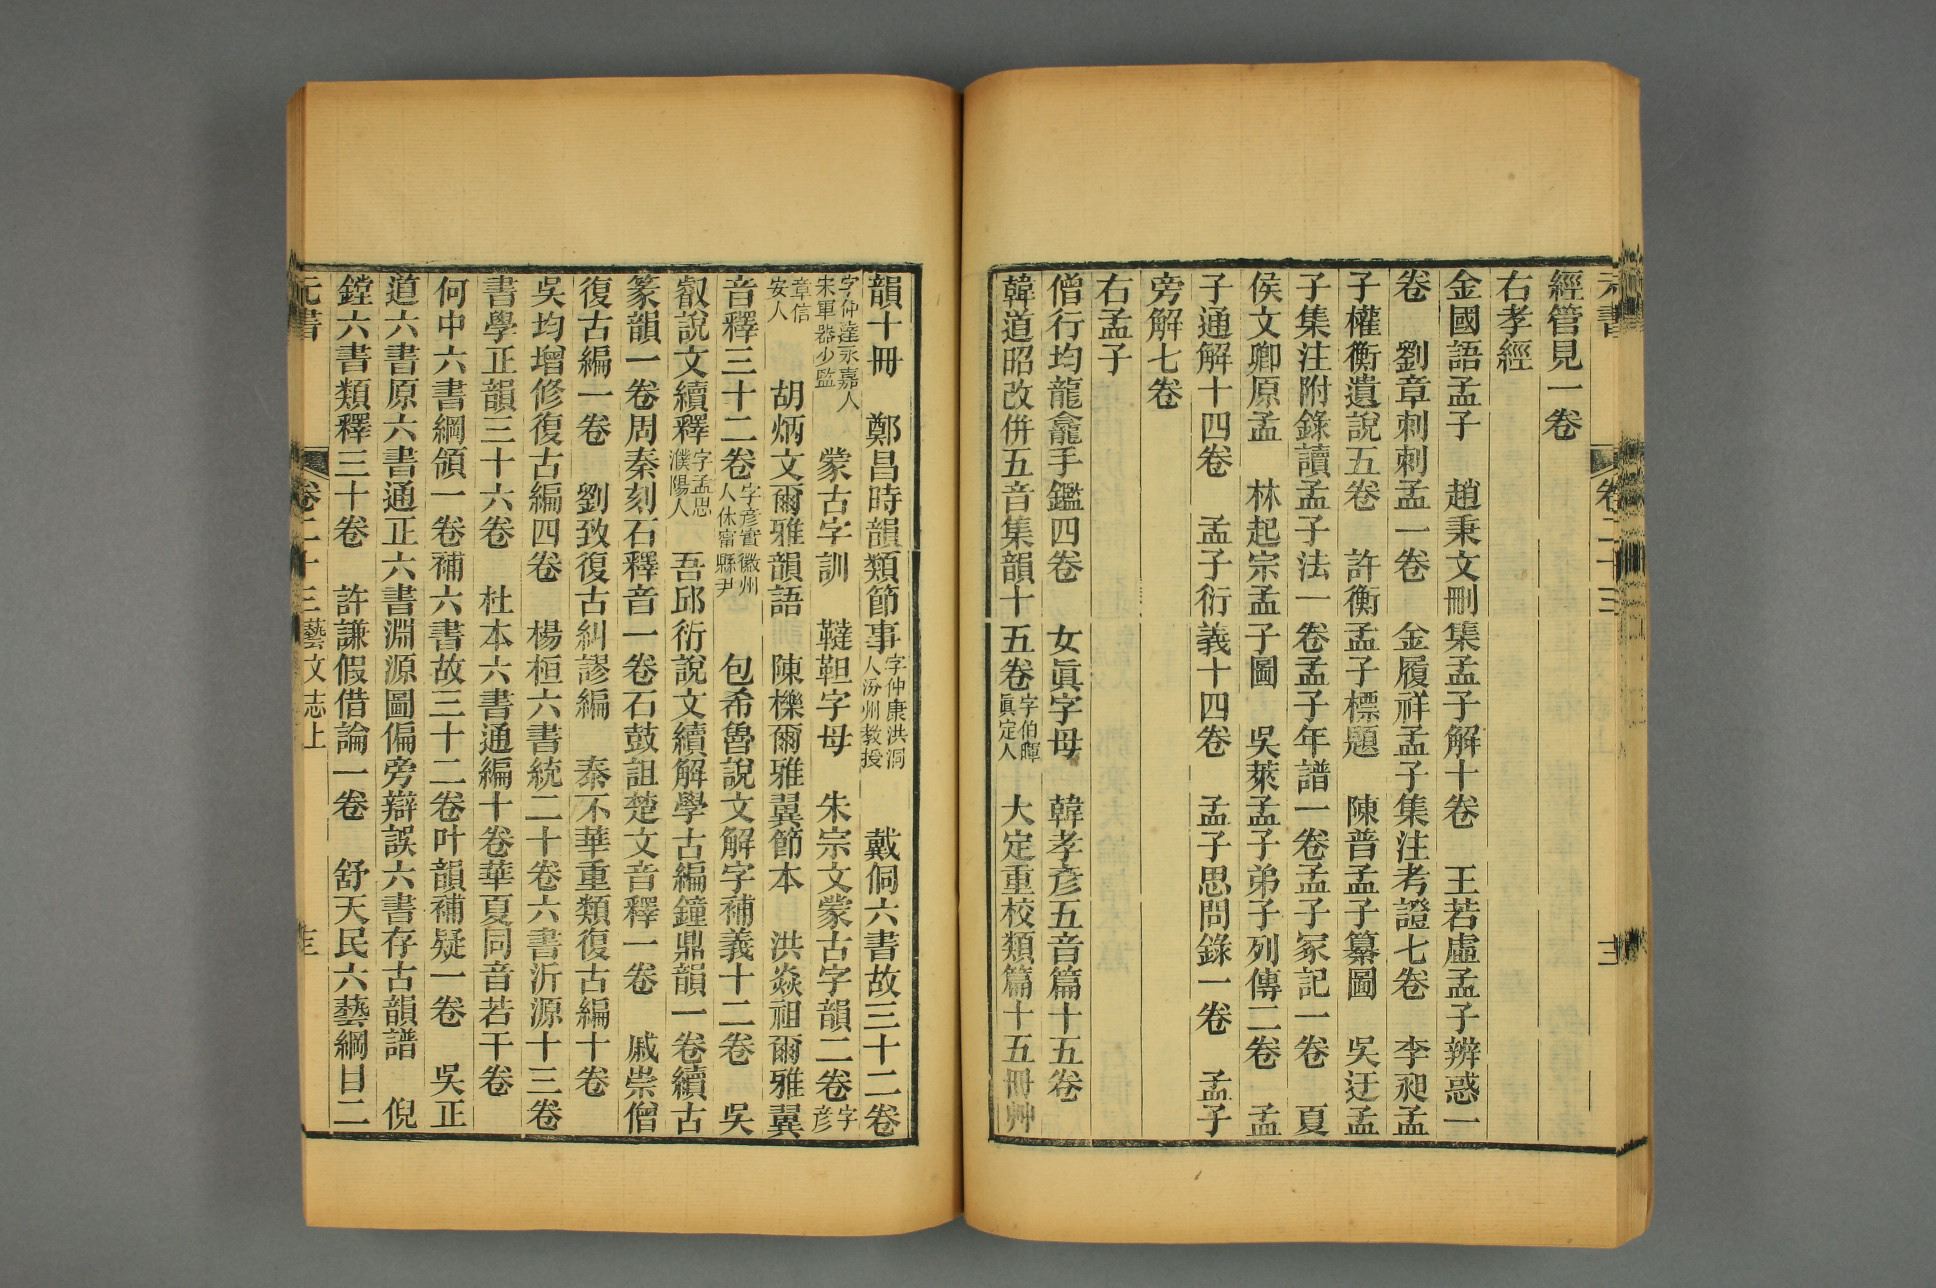 經管見一卷
右孝經
金國語孟子　趙秉文刪集孟子解十卷　王若虛孟子辨惑一
卷　劉章刺刺孟一卷　金履祥孟子集注考證七卷　李昶孟
子權衡遺說五卷　許衡孟子標題　陳普孟子纂圖　吳迂孟
子集注附錄讀孟子法一卷孟子年譜一卷孟子冢記一卷　夏
侯文卿原孟　林起宗孟子圖　吳萊孟子弟子列傳二卷　孟
子通解十四卷　孟子衍義十四卷　孟子思問錄一卷　孟子
旁解七卷
右孟子
僧行均龍龕手鑑四卷　女眞字母　韓孝彥五音篇十五卷
韓道昭改併五音集韻十五卷字伯暉眞定人　大定重校類篇十五冊艸
韻十冊　鄭昌時韻類節事字仲康洪洞人汾州教授　戴侗六書故三十二卷
字仲達永嘉人宋軍器少監　蒙古字訓　韃靼字母　朱宗文蒙古字韻二卷字彥
章信安人　胡炳文爾雅韻語　陳櫟爾雅翼節本　洪焱祖爾雅翼
音釋三十二卷字彥實徽州人休甯縣尹　包希魯說文解字補義十二卷　吳
叡說文續釋字孟思濮陽人　吾邱衍說文續解學古編鐘鼎韻一卷續古
篆韻一卷周秦刻石釋音一卷石鼓詛楚文音釋一卷　戚崇僧
復古編一卷　劉致復古糾謬編　泰不華重類復古編十卷
吳均增修復古編四卷　楊桓六書統二十卷六書泝源十三卷
書學正韻三十六卷　杜本六書通編十卷華夏同音若干卷
何中六書綱領一卷補六書故三十二卷叶韻補疑一卷　吳正
道六書原六書通正六書淵源圖偏旁辯誤六書存古韻譜　倪
鏜六書類釋三十卷　許謙假借論一卷　舒天民六藝綱目二
元書　卷二十三藝文志上